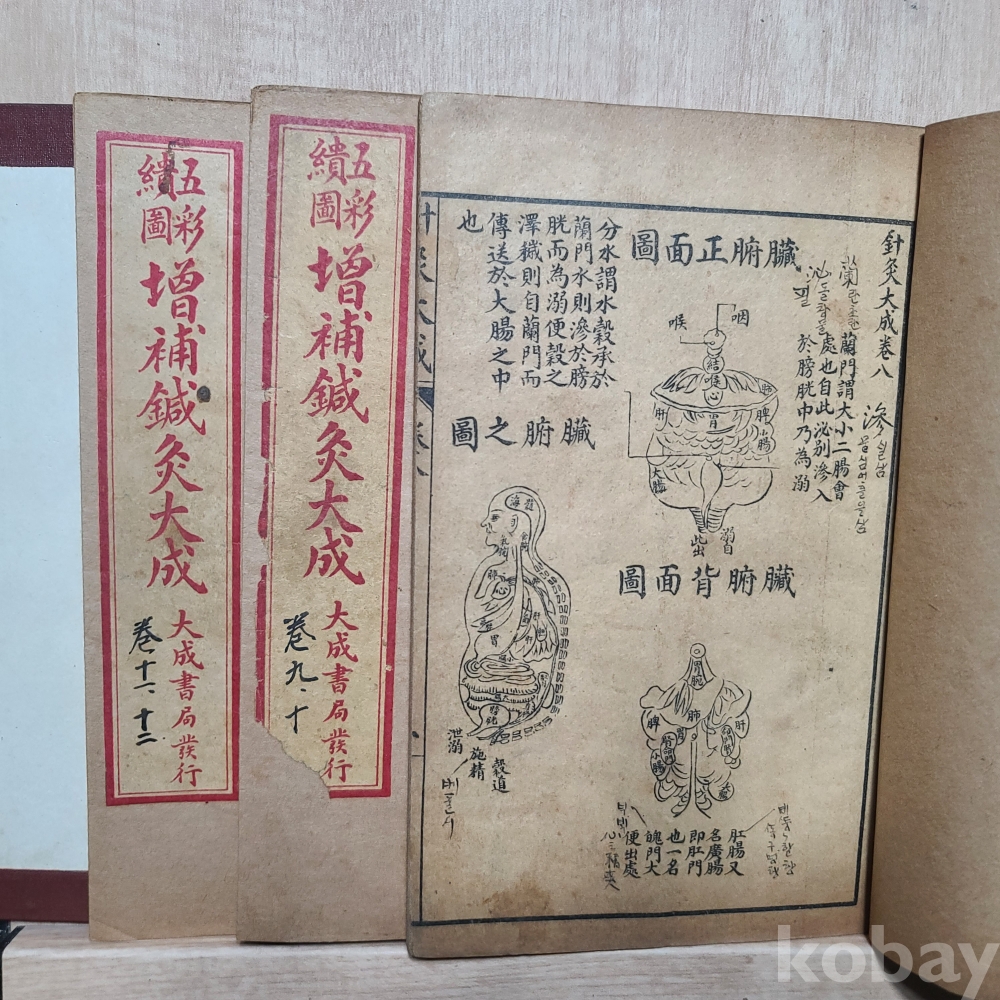 五彩
繢圖
增補鍼灸大成
大成書局發行
卷十一、十二
五彩
繢圖
增補鍼灸大成
大成書局發行
卷九、十
針灸大成卷八
蘭門謂大小二腸會
處也自此泌別滲入
於膀胱中乃為溺
滲
臟腑正面圖
咽
喉
心
胃
肝
脾
小腸
大腸
分水謂水穀承於
蘭門水則滲於膀
胱而為溺便穀之
澤穢則自蘭門而
傳送於大腸之中
也
臟腑之圖
髓
海
肺
心
胃
泄溺
施精
穀道
臟腑背面圖
胃脘
肺
脾
肝
小腸
肛腸又
名廣腸
即肛門
也一名
魄門大
便出處
kobay